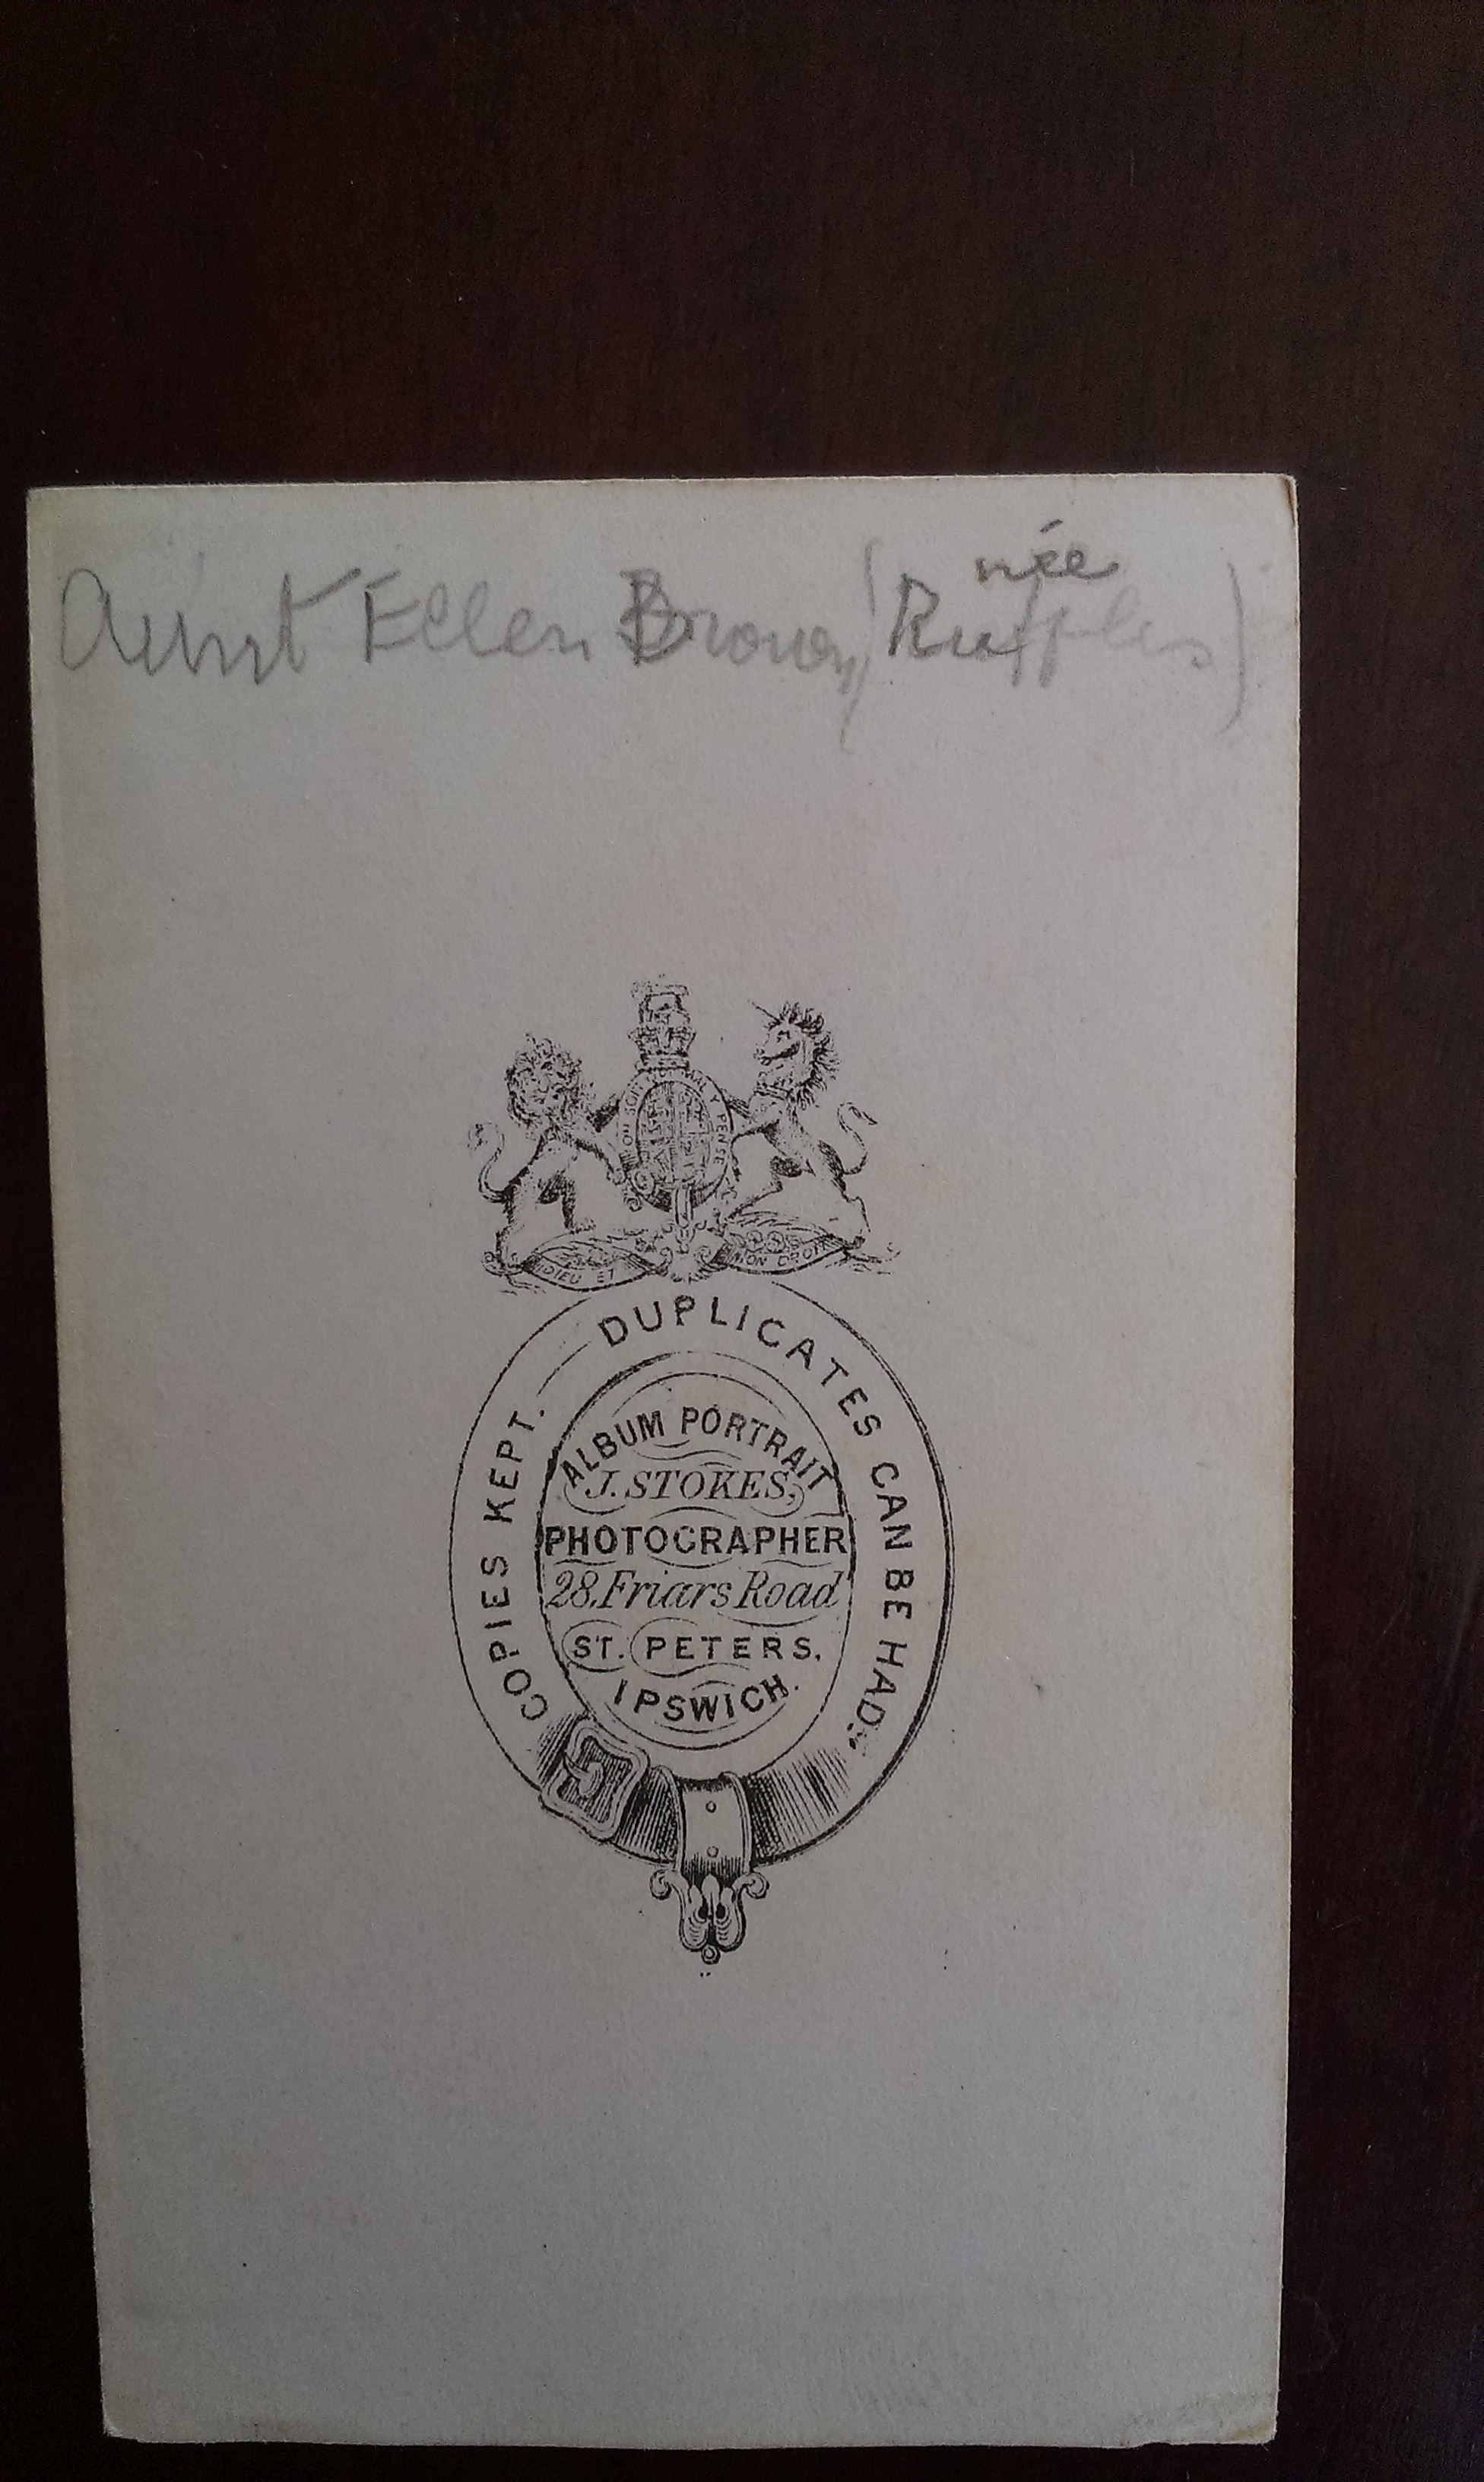 née
Aunt Ellen Brown (Ruffles)
HONI SOIT QUI MAL Y PENSE
DIEU ET MON DROIT
COPIES KEPT. DUPLICATES CAN BE HAD.
ALBUM PORTRAIT
J. STOKES,
PHOTOGRAPHER
28, Friars Road
ST. PETERS,
IPSWICH.